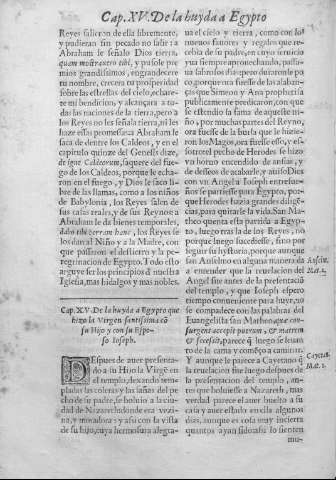 Cap. XV. De la huyda a Egypto
Reyes salieron de ella libremente,
y pudieran sin pecado no salir: a
Abraham le señalo Dios tierra,
quam monstravero tibi, y pusole pre
mios grandissimos, engrandecere
tu nombre, crecera tu posteridad
sobre las estrellas del cielo, echare-
te mi bendicion, y alcançara a to-
das las naciones de la tierra, pero a
los Reyes no les señala tierra, ni les
haze essas promessas: a Abraham le
saca de dentro los Caldeos, y en el
capitulo quinze del Genesis dize,
de igne Caldeorum, saquere del fue-
go de los Caldeos, porque le echa-
ron en el fuego, y Dios le saco li-
bre de las llamas, como a los niños
de Babylonia, los Reyes salen de
sus casas reales, y de sus Reynos: a
Abraham le da bienes temporales,
dabo tibi terram hanc, los Reyes se
los dan al Niño y a la Madre, con
que passaron el destierro y la pe-
regrinacion de Egypto. Todo esto
arguye ser los principios de nuestra
Iglesia, mas hidalgos y mas nobles.
Cap. XV. De la huyda a Egypto que
hizo la Virgen santissima cõ
su Hijo y con su Espo-
so Ioseph.
Despues de auer presenta-
do a su Hijo la Virgẽ en
el templo, dexando tem-
pladas las coleras y las iañas del pe-
cho de su padre, se boluio a la ciu-
dad de Nazareth donde era vezi-
na, y moradora: y assi con la vista
de su hijo, cuya hermosura alegra-
ua el cielo y tierra, como con los
nueuos fauores y regalos que re-
cebia de su padre, en cuyo seruicio
yua siempre aprouechando, passa-
ua
co porque con las alaban-
ças que Simeon y Ana prophetisa
publicamente predicaron, con que
se estendio la fama de aquella ni-
ño, por muchas partes del Reyno,
ora fuesse de la burla que le hizie-
ron los Magos, ora fuesse esso, y es-
sotro, el pecho de Herodes se hizo
vn horno encendido de ansias, y
de desseos de acabarle, y auiso Dios
con vn Angel a Ioseph entresue-
ños se partiesse para Egypto, por-
que Herodes hazia grandes diligẽ-
cias, para quitarle la vida. San Ma-
theo quenta esta partida a Egip-
to, luego tras la de los Reyes, no
porque luego sucediesse, sino por
seguir su hystoria, porque aunque
san Anselmo en alguna manera da
a entender que la reuelacion del
Angel fue antes de la presentaciõ
del templo, y que Ioseph espero
tiempo conueniente para huyr, no
se compadece con las palabras del
Euangelista san Matheo, que con-
surgens accepit puerum, & matrem
& secessit, parece q̃ luego se leuan
to de la cama y començo a caminar.
Y aunque le parece a Cayetano q̃
la reuelacion fue luego despues de
la presentacion del templo, an-
tes que boluiesse a Nazareth, mas
verdad parece el auer buelto a su
casa y auer estado en ella algunos
dias, aunque es cosa muy incierta
quantos ayan sido: assi lo sienten
mu-
Anselm.
Mat. 2.
Cayeta.
Mat. 2.